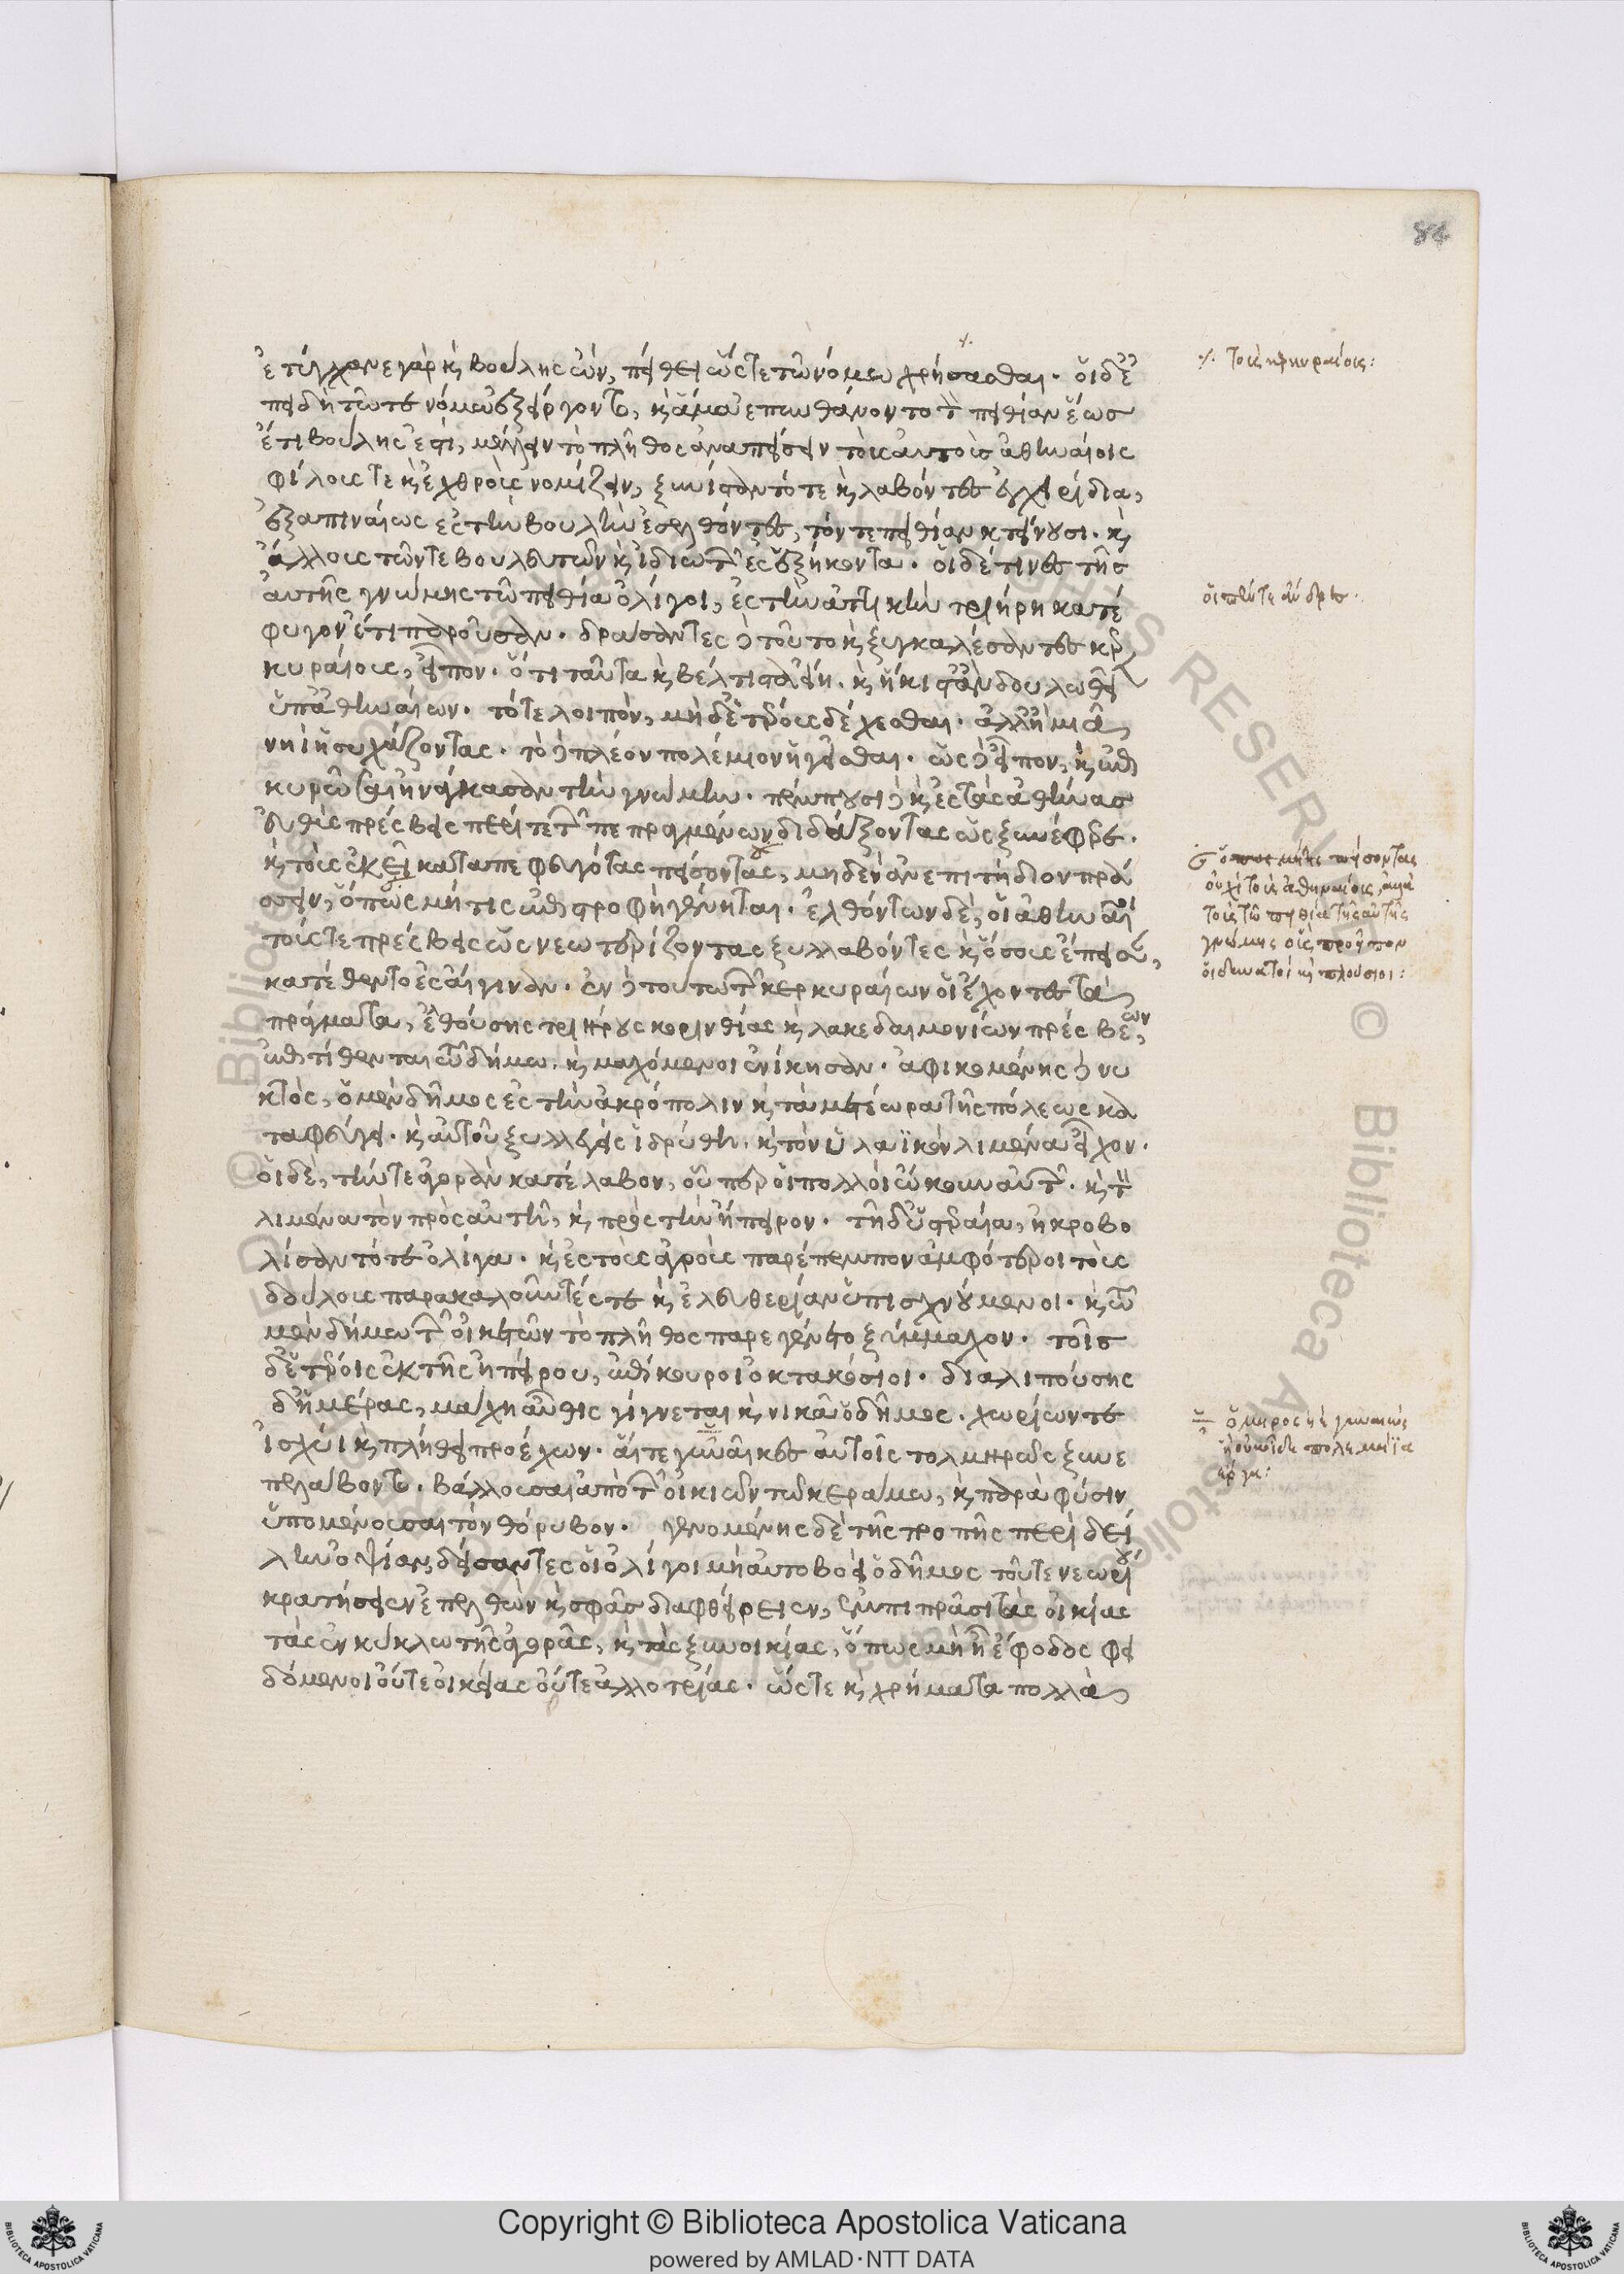 84
ἐτύγχανε γὰρ καὶ βουλῆς ὢν, πείθει ὥστε τῶ νόμω χρήσασθαι. οἱ δ' ἐ
πειδὴ τῶ τε νόμω ἐξείργοντο, καὶ ἅμα ἐπυνθάνοντο τὸν πειθίαν ἕως
ἔτι βουλῆς ἐστὶ, μέλλειν τὸ πλῆθος ἀναπείσειν τοὺς αὐτοὺς ἀθηναίοις
φίλους τε καὶ ἐχθροὺς νομίζειν, ξυνίσταντό τε καὶ λαβόντες ἐγχειρίδια,
ἐξαπιναίως ἐς τὴν βουλὴν ἐσελθόντες, τόν τε πειθίαν κτείνουσι. καὶ
ἄλλους τῶν τε βουλευτῶν καὶ ἰδιωτῶν ἐς ἑξήκοντα. οἱ δέ τινες τῆς
αὐτῆς γνώμης τῶ πειθία ὀλίγοι, ἐς τὴν ἀττικὴν τριήρη κατέ
φυγον ἔτι παροῦσαν. δράσαντες δὲ τοῦτο καὶ ξυγκαλέσαντες κερ
κυραίους, εἶπον. ὅτι ταῦτα καὶ βέλτιστα εἴη. καὶ ἥκιστ' ἂν δουλωθεῖεν
ὑπ' ἀθηναίων. τό τε λοιπὸν, μηδετέρους δέχεσθαι. ἀλλ' ἢ μιᾷ
νηὶ ἡσυχάζοντας. τὸ δὲ πλέον πολέμιον ἡγεῖσθαι. ὡς δὲ εἶπον, καὶ ἐπι
κυρῶσαι ἠνάγκασαν τὴν γνώμην. πέμπουσι δὲ καὶ ἐς τὰς ἀθήνας
εὐθὺς πρέσβεις περί τε τῶν πεπραγμένων διδάξοντας ὡς ξυνέφερε.
καὶ τοὺς ἐκεῖ καταπεφευγότας πείσοντας, μηδὲν ἀνεπιτήδειον πράσ
σειν, ὅπως μή τις ἐπιστροφὴ γένηται. ἐλθόντων δὲ, οἱ ἀθηναῖοι
τούς τε πρέσβεις ὡς νεωτερίζοντας ξυλλαβόντες καὶ ὅσους ἔπεισαν,
κατέθεντο ἐς αἴγιναν. ἐν δὲ τούτω τῶν κερκυραίων οἱ ἔχοντες τὰ
πράγματα, ἐλθούσης τριήρους κορινθίας καὶ λακεδαιμονίων πρέσβεων,
ἐπιτίθενται τῶ δήμω. καὶ μαχόμενοι ἐνίκησαν. ἀφικομένης δὲ νυ
κτὸς, ὁ μὲν δῆμος ἐς τὴν ἀκρόπολιν καὶ τὰ μετέωρα τῆς πόλεως κα
ταφεύγει. καὶ αὐτοῦ ξυλλεγεὶς ἱδρύθη. καὶ τὸν ὑλαϊκὸν λιμένα εἶχον.
οἱ δὲ, τήν τε ἀγορὰν κατέλαβον, οὗπερ οἱ πολλοὶ ᾤκουν αὐτῶν. καὶ τὸν
λιμένα τὸν πρὸς αὐτῇ, καὶ πρὸς τὴν ἤπειρον. τῇ δ' ὑστεραία, ἠκροβο
λίσαντό τε ὀλίγα. καὶ ἐς τοὺς ἀγροὺς παρέπεμπον ἀμφότεροι τοὺς
δούλους παρακαλοῦντές τε καὶ ἐλευθερίαν ὑπισχνούμενοι. καὶ τῶ
μὲν δήμω τῶν οἰκετῶν τὸ πλῆθος παρεγένετο ξύμμαχον. τοῖς
δ' ἑτέροις ἐκ τῆς ἠπείρου, ἐπίκουροι ὀκτακόσιοι. διαλιπούσης
δ' ἡμέρας, μάχη αὖθις γίγνεται καὶ νικᾷ ὁ δῆμος. χωρίων τε
ἰσχύι καὶ πλήθει προέχων. αἵ τε γυναῖκες αὐτοῖς τολμηρῶς ξυνε
πελάβοντο. βάλλουσαι ἀπὸ τῶν οἰκιῶν τῶ κεράμω, καὶ παρὰ φύσιν
ὑπομένουσαι τὸν θόρυβον. γενομένης δὲ τῆς τροπῆς περὶ δεί
λην ὀψίαν, δείσαντες οἱ ὀλίγοι μὴ αὐτοβοεὶ ὁ δῆμος τοῦ τε νεωρίου
κρατήσειεν ἐπελθὼν καὶ σφᾶς διαφθείρειεν, ἐμπιπρᾶσι τὰς οἰκίας
τὰς ἐν κύκλω τῆς ἀγορᾶς, καὶ τὰς ξυνοικίας, ὅπως μὴ ᾖ ἔφοδος φει
δόμενοι οὔτε οἰκείας οὔτε ἀλλοτρίας. ὥστε καὶ χρήματα πολλὰ
τοῖς κερκυραίοις:
οἱ πέντε ἄνδρες.
ὅπως πείσοντας
οὐχὶ τοὺς ἀθηναίους, ἀλλὰ
τοὺς τῶ πειθία τῆς αὐτῆς
γνώμης οὓς προεῖπον
οἱ δυνατοὶ καὶ πλούσιοι:
ὅμηρος
πολεμήϊα
ἔργα: